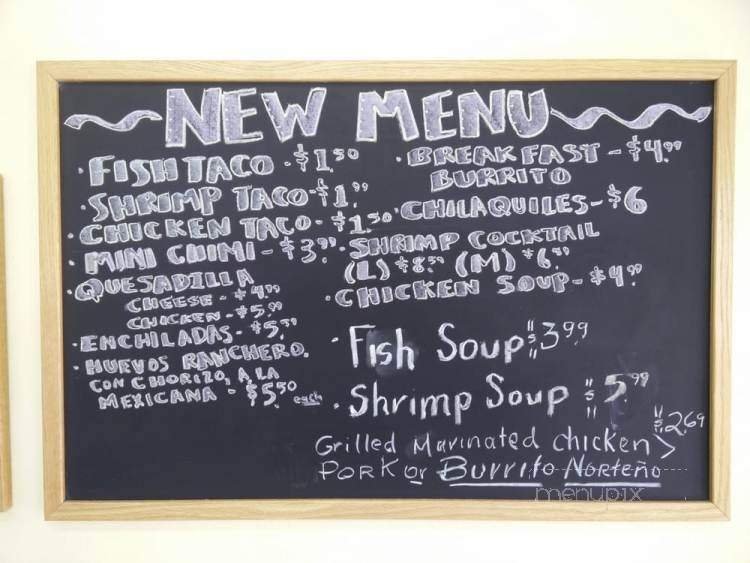 NEW MENU
• FISH TACO - $1.50
• SHRIMP TACO - $1.99
• CHICKEN TACO - $1.50
• MINI CHIMI - $3.99
• QUESADILLA
CHEESE - $4.99
CHICKEN - $5.99
• ENCHILADAS - $5.
• HUEVOS RANCHERO,
CON CHORIZO, A LA
MEXICANA - $5.50 each
• BREAKFAST - $4.99
BURRITO
• CHILAQUILES - $6
• SHRIMP COCKTAIL
(L) $8. (M) $6.
• CHICKEN SOUP - $4.99
• Fish Soup $3.99
• Shrimp Soup $5.99
$2.69
Grilled Marinated chicken >
PORK or Burrito Norteño
menupix